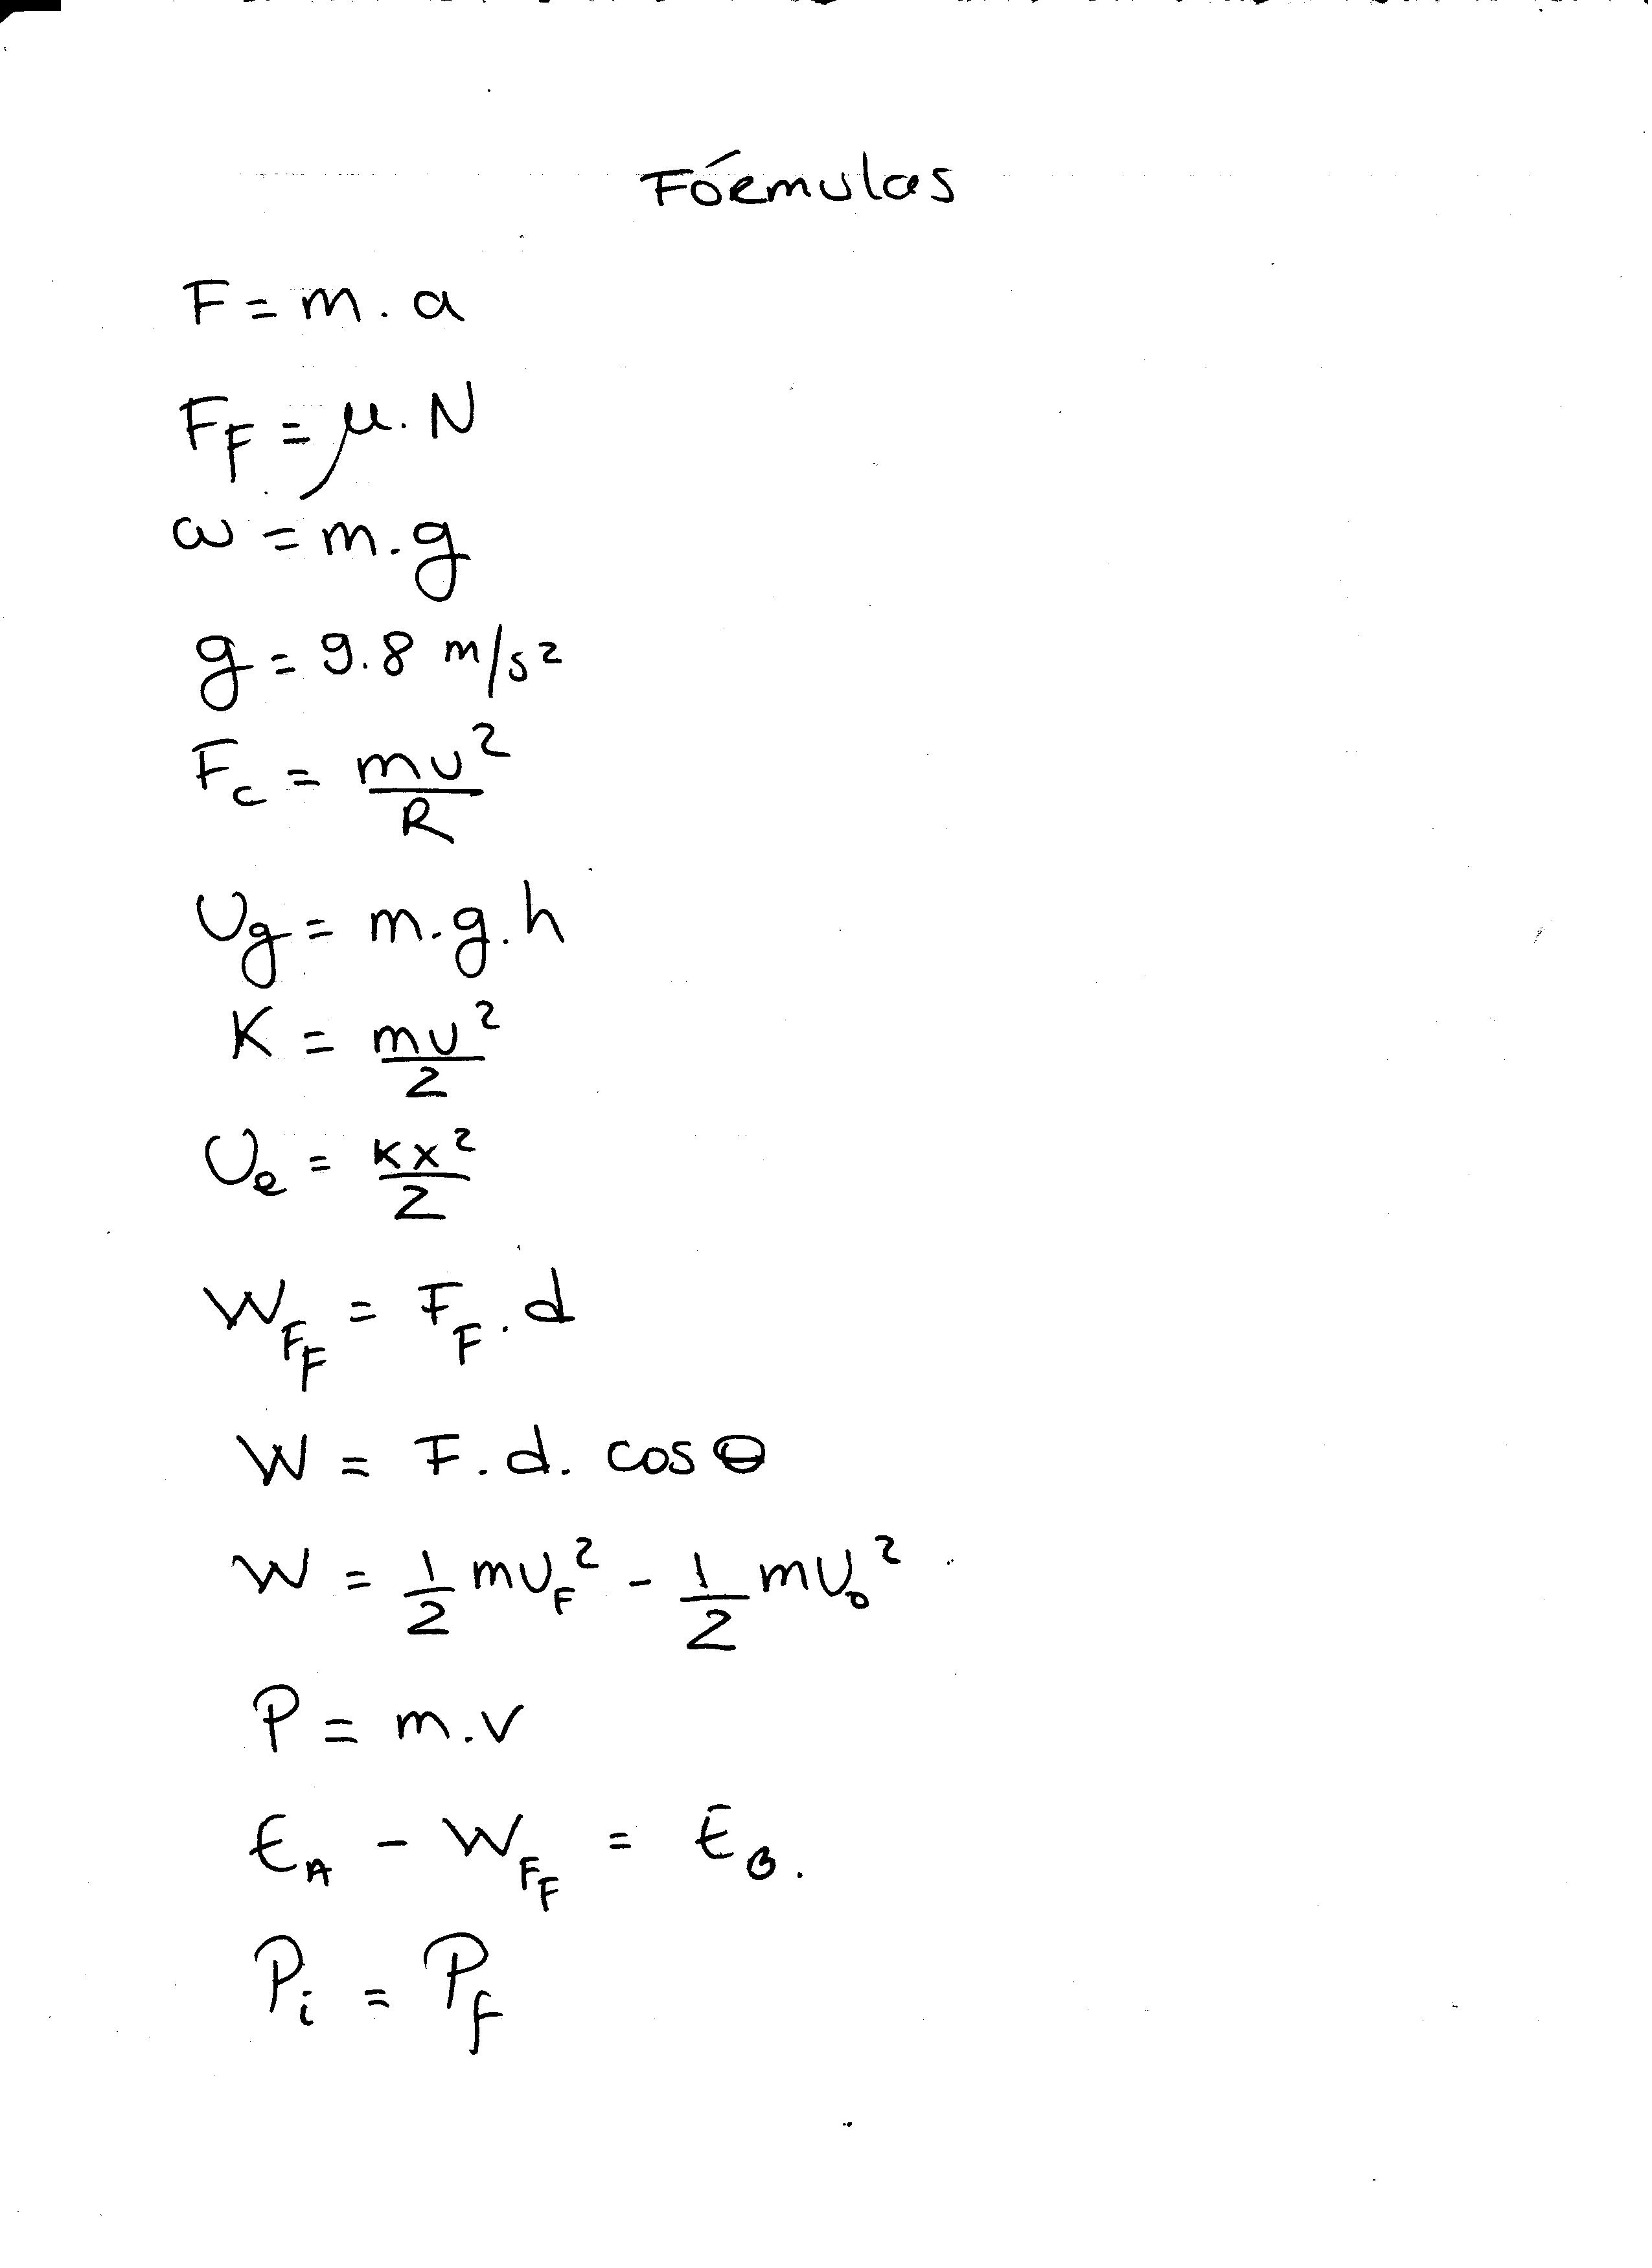 Fórmulas
F = m . a
F_F = μ . N
ω = m . g
g = 9.8 m/s²
F_c = mv²/R
U_g = m . g . h
K = mv²/2
U_e = Kx²/2
W_{F_F} = F_F . d
W = F . d . cos θ
W = 1/2 mv_F² - 1/2 mv_0²
P = m . v
E_A - W_{F_F} = E_B .
P_i = P_f